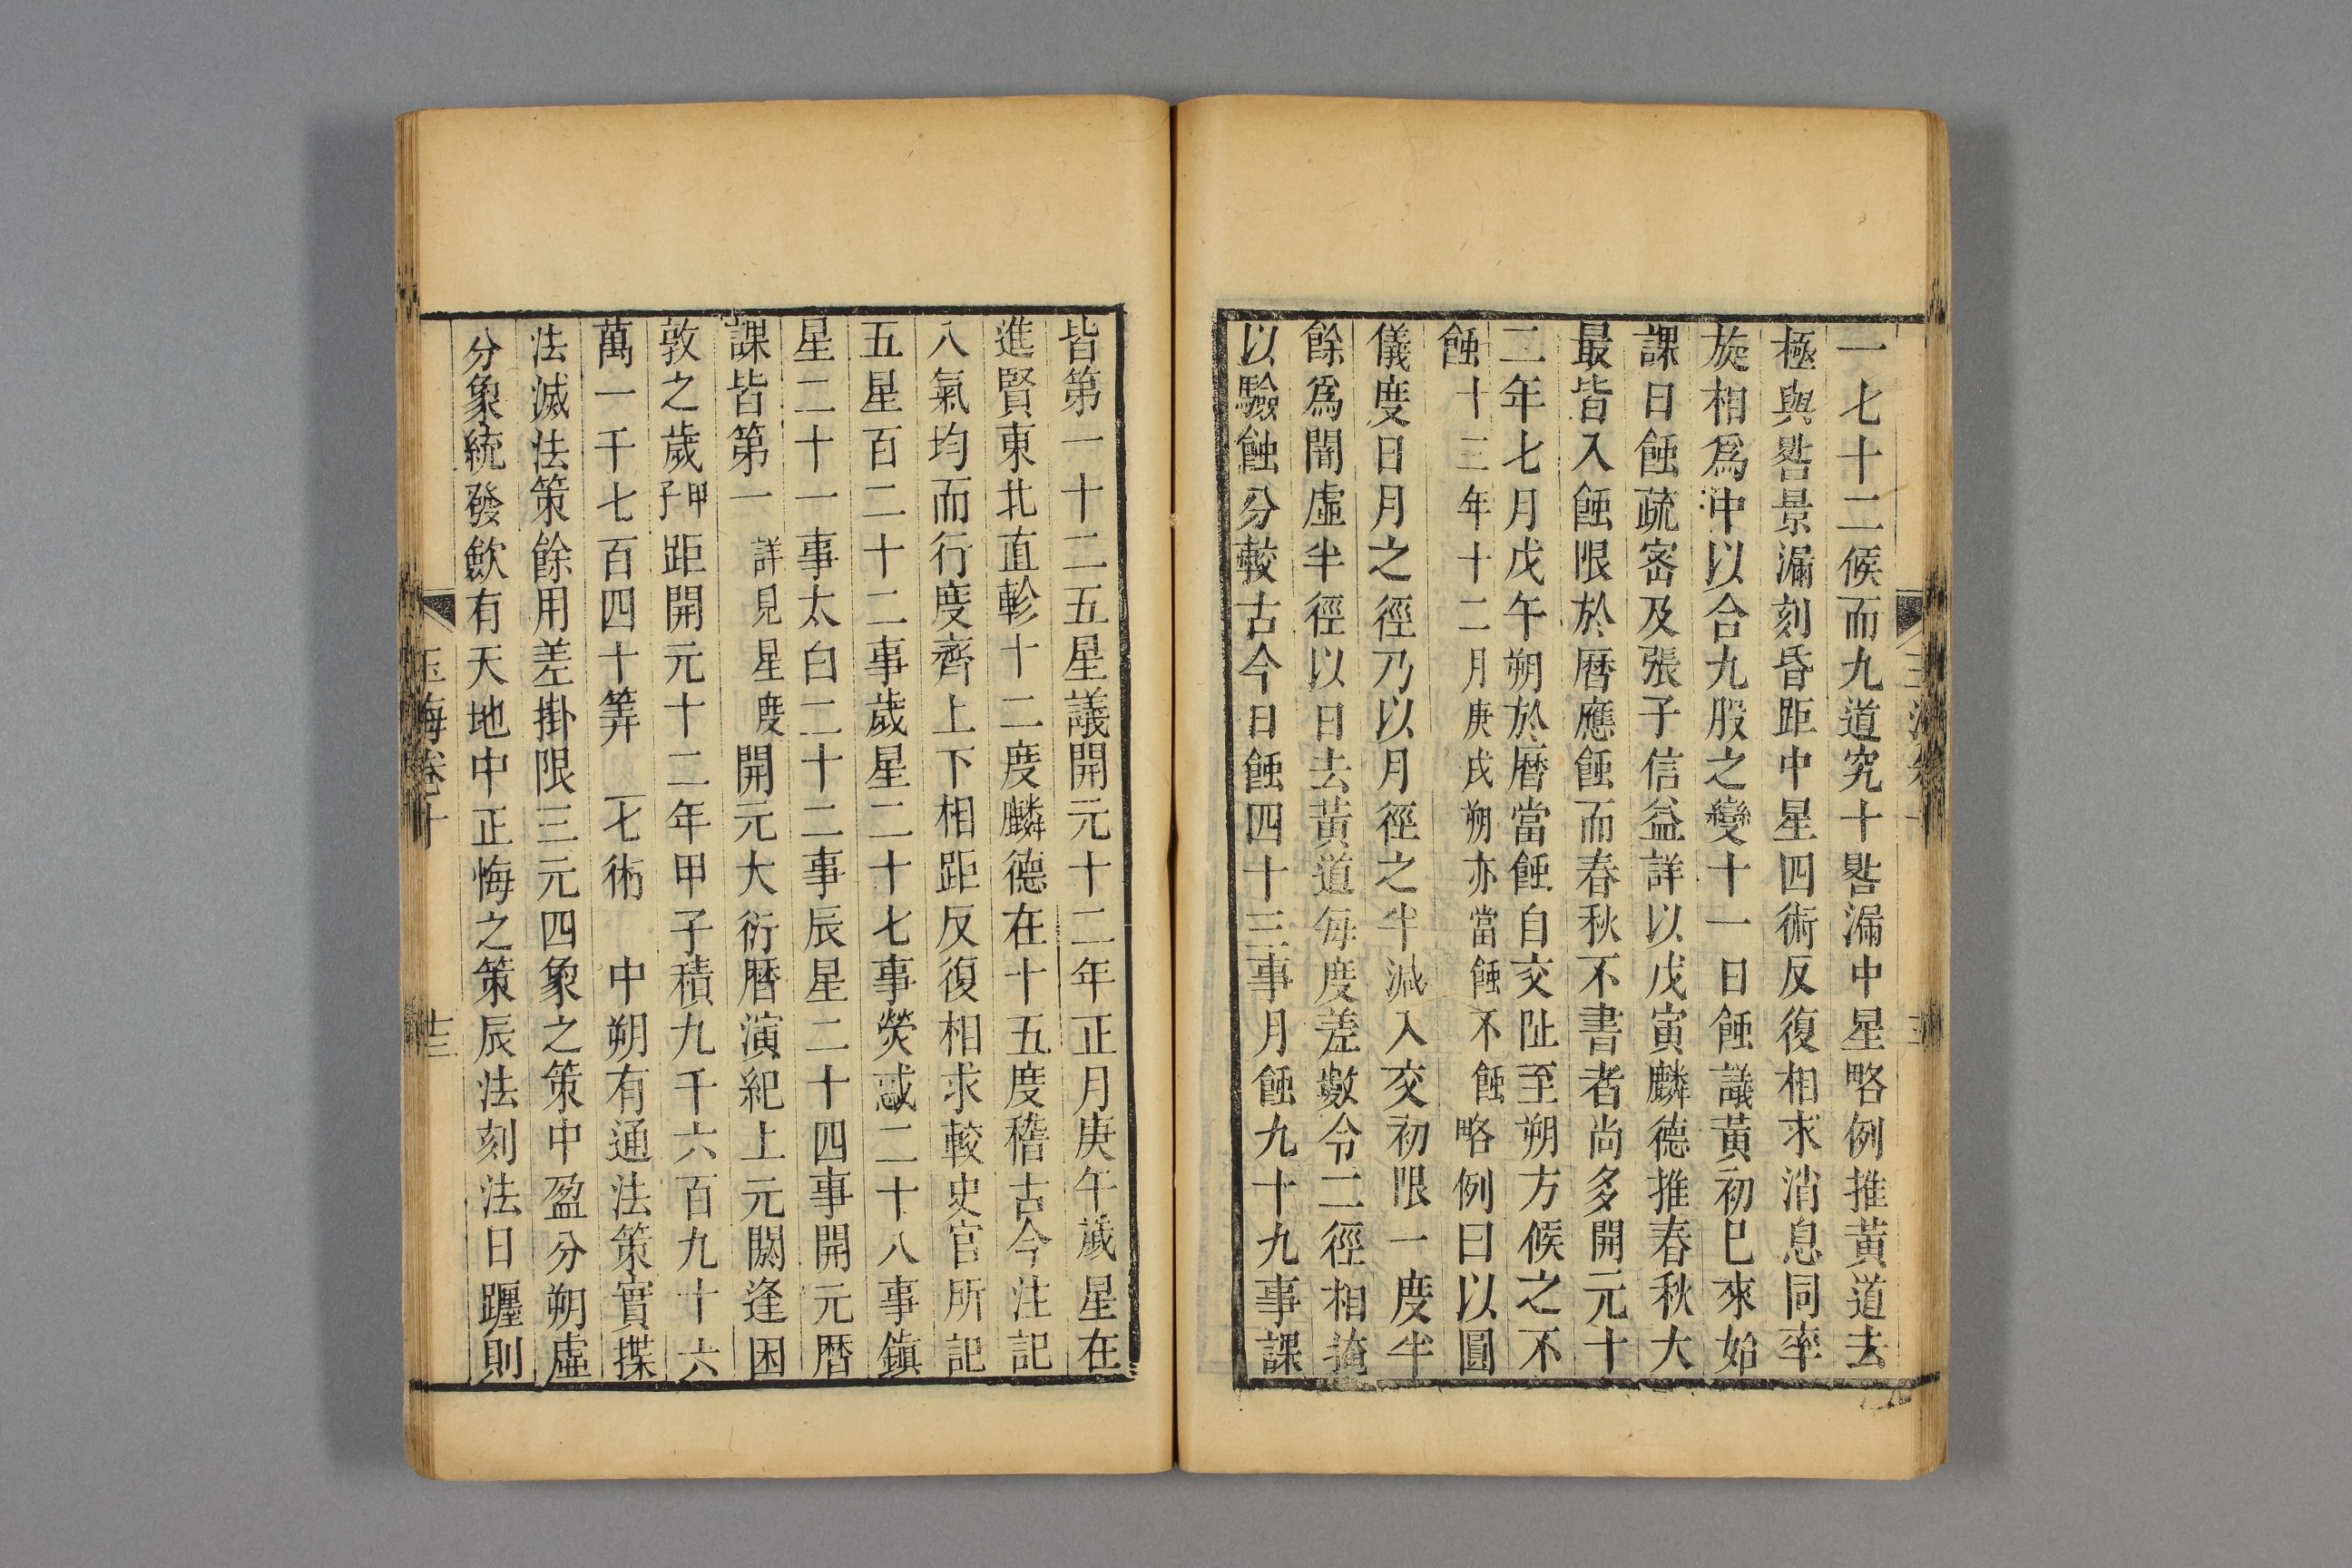 一七十二候而九道究十晷漏中星略例推黃道去
極與晷景漏刻昏距中星四術反復相求消息同率
旋相爲中以合九股之變十一日蝕議黃初已來始
課日蝕疏密及張子信益詳以戊寅麟德推春秋大
最皆入蝕限於曆應蝕而春秋不書者尚多開元十
二年七月戊午朔於曆當蝕自交阯至朔方候之不
蝕十三年十二月庚戌朔亦當蝕不蝕略例曰以圓
儀度日月之徑乃以月徑之半減入交初限一度半
餘爲闇虛半徑以日去黃道每度差數令二徑相掩
以驗蝕分較古今日蝕四十三事月蝕九十九事課
皆第一十二五星議開元十二年正月庚午歲星在
進賢東北直軫十二度麟德在十五度稽古今注記
八氣均而行度齊上下相距反復相求較史官所記
五星百二十二事歲星二十七事熒惑二十八事鎮
星二十一事太白二十二事辰星二十四事開元曆
課皆第一詳見星度開元大衍曆演紀上元閼逢困
敦之歲甲子距開元十二年甲子積九千六百九十六
萬一千七百四十筭 一七術 中朔有通法策實揲
法滅法策餘用差掛限三元四象之策中盈分朔虛
分象統發斂有天地中正悔之策辰法刻法日躔則
玉海卷十
廿三